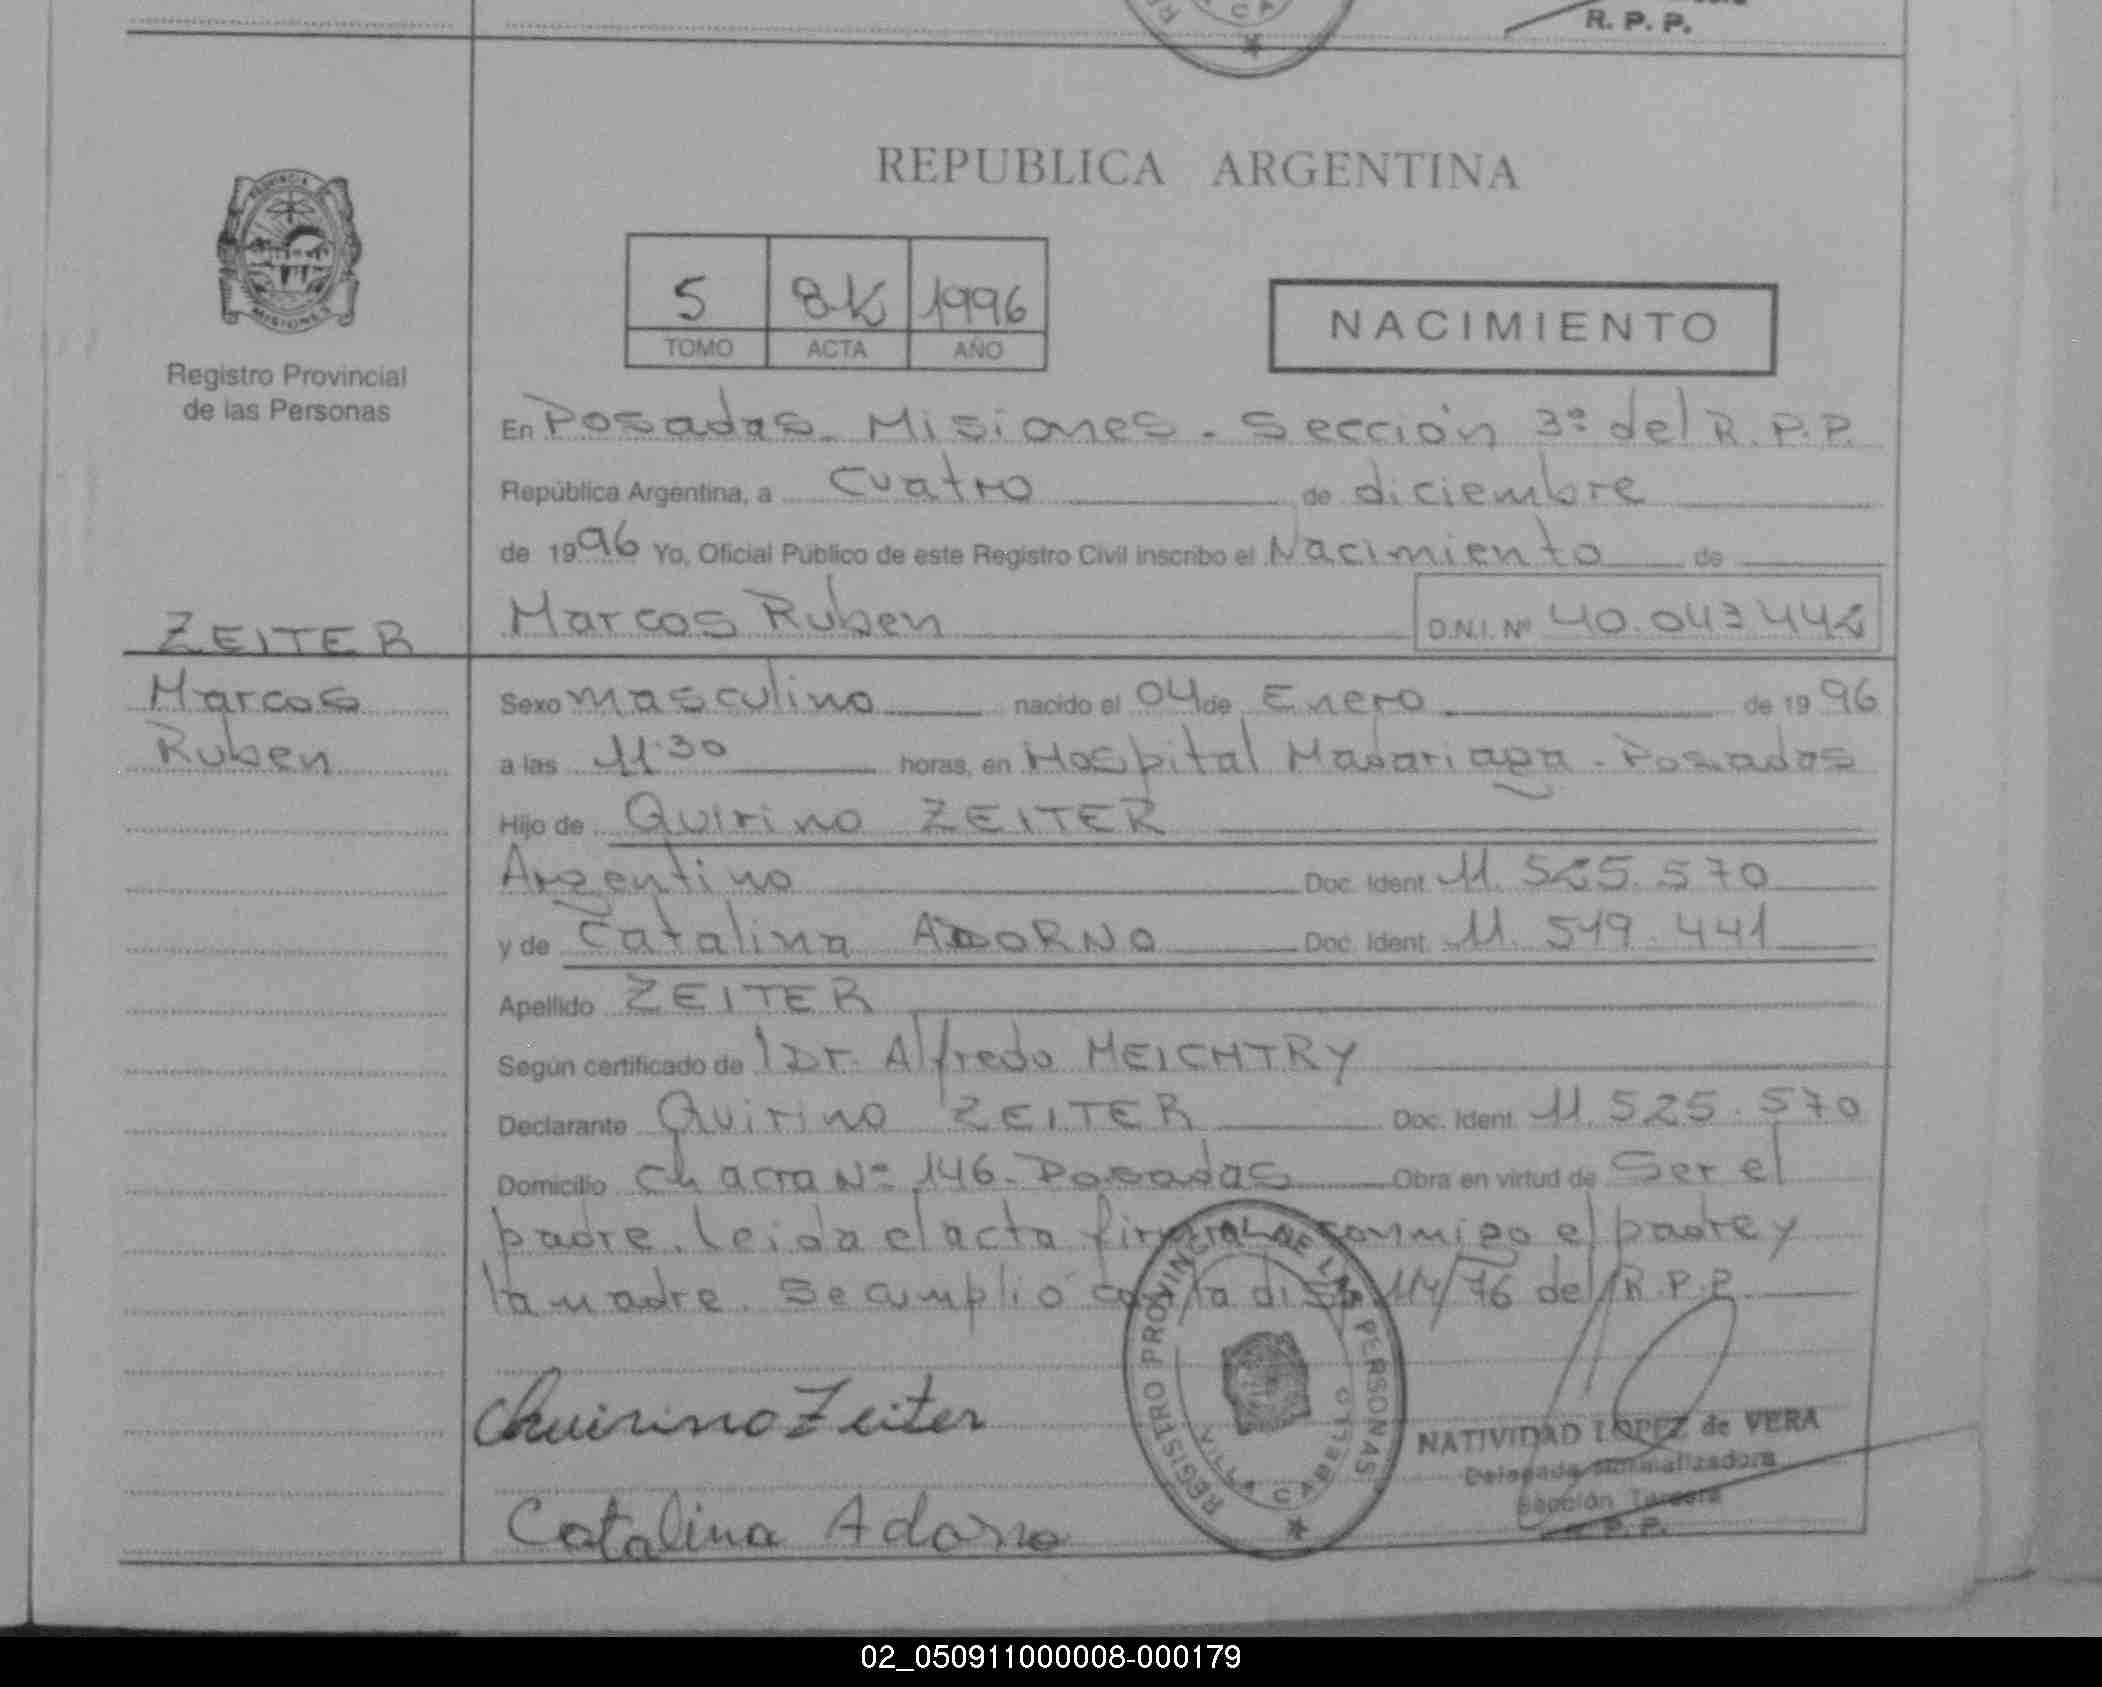 R. P. P.
REPUBLICA ARGENTINA
PROVINCIA
MISIONES
Registro Provincial
de las Personas
5 1996
TOMO ACTA AÑO
NACIMIENTO
En Posadas - Misiones - Sección 3º del R.P.P.
República Argentina, a cuatro de diciembre
de 1996 Yo, Oficial Público de este Registro Civil inscribo el Nacimiento de
ZEITER
Marcos Ruben D.N.I. Nº
Marcos
Ruben
Sexo masculino nacido el 04 de Enero de 1996
a las 11:30 horas, en Hospital Madariaga - Posadas
Hijo de Quirino ZEITER
Argentino Doc. Ident. 11.525.570
y de Catalina ADORNO Doc. Ident. 11.519.441
Apellido ZEITER
Según certificado de l Dr. Alfredo MEICHTRY
Declarante Quirino ZEITER Doc. Ident. 11.525.570
Domicilio Chacra Nº 146 - Posadas Obra en virtud de ser el
padre. leida el acta conmigo el padre y
la madre. Se cumplió con la disp. 114/76 del R.P.P.
REGISTRO PROVINCIAL DE LAS PERSONAS
VILLA CABELLO
Quirino Zeiter
Catalina Adorno
NATIVIDAD LOPEZ de VERA
Delegada Normalizadora
Sección Tercera
R. P. P.
02_050911000008-000179